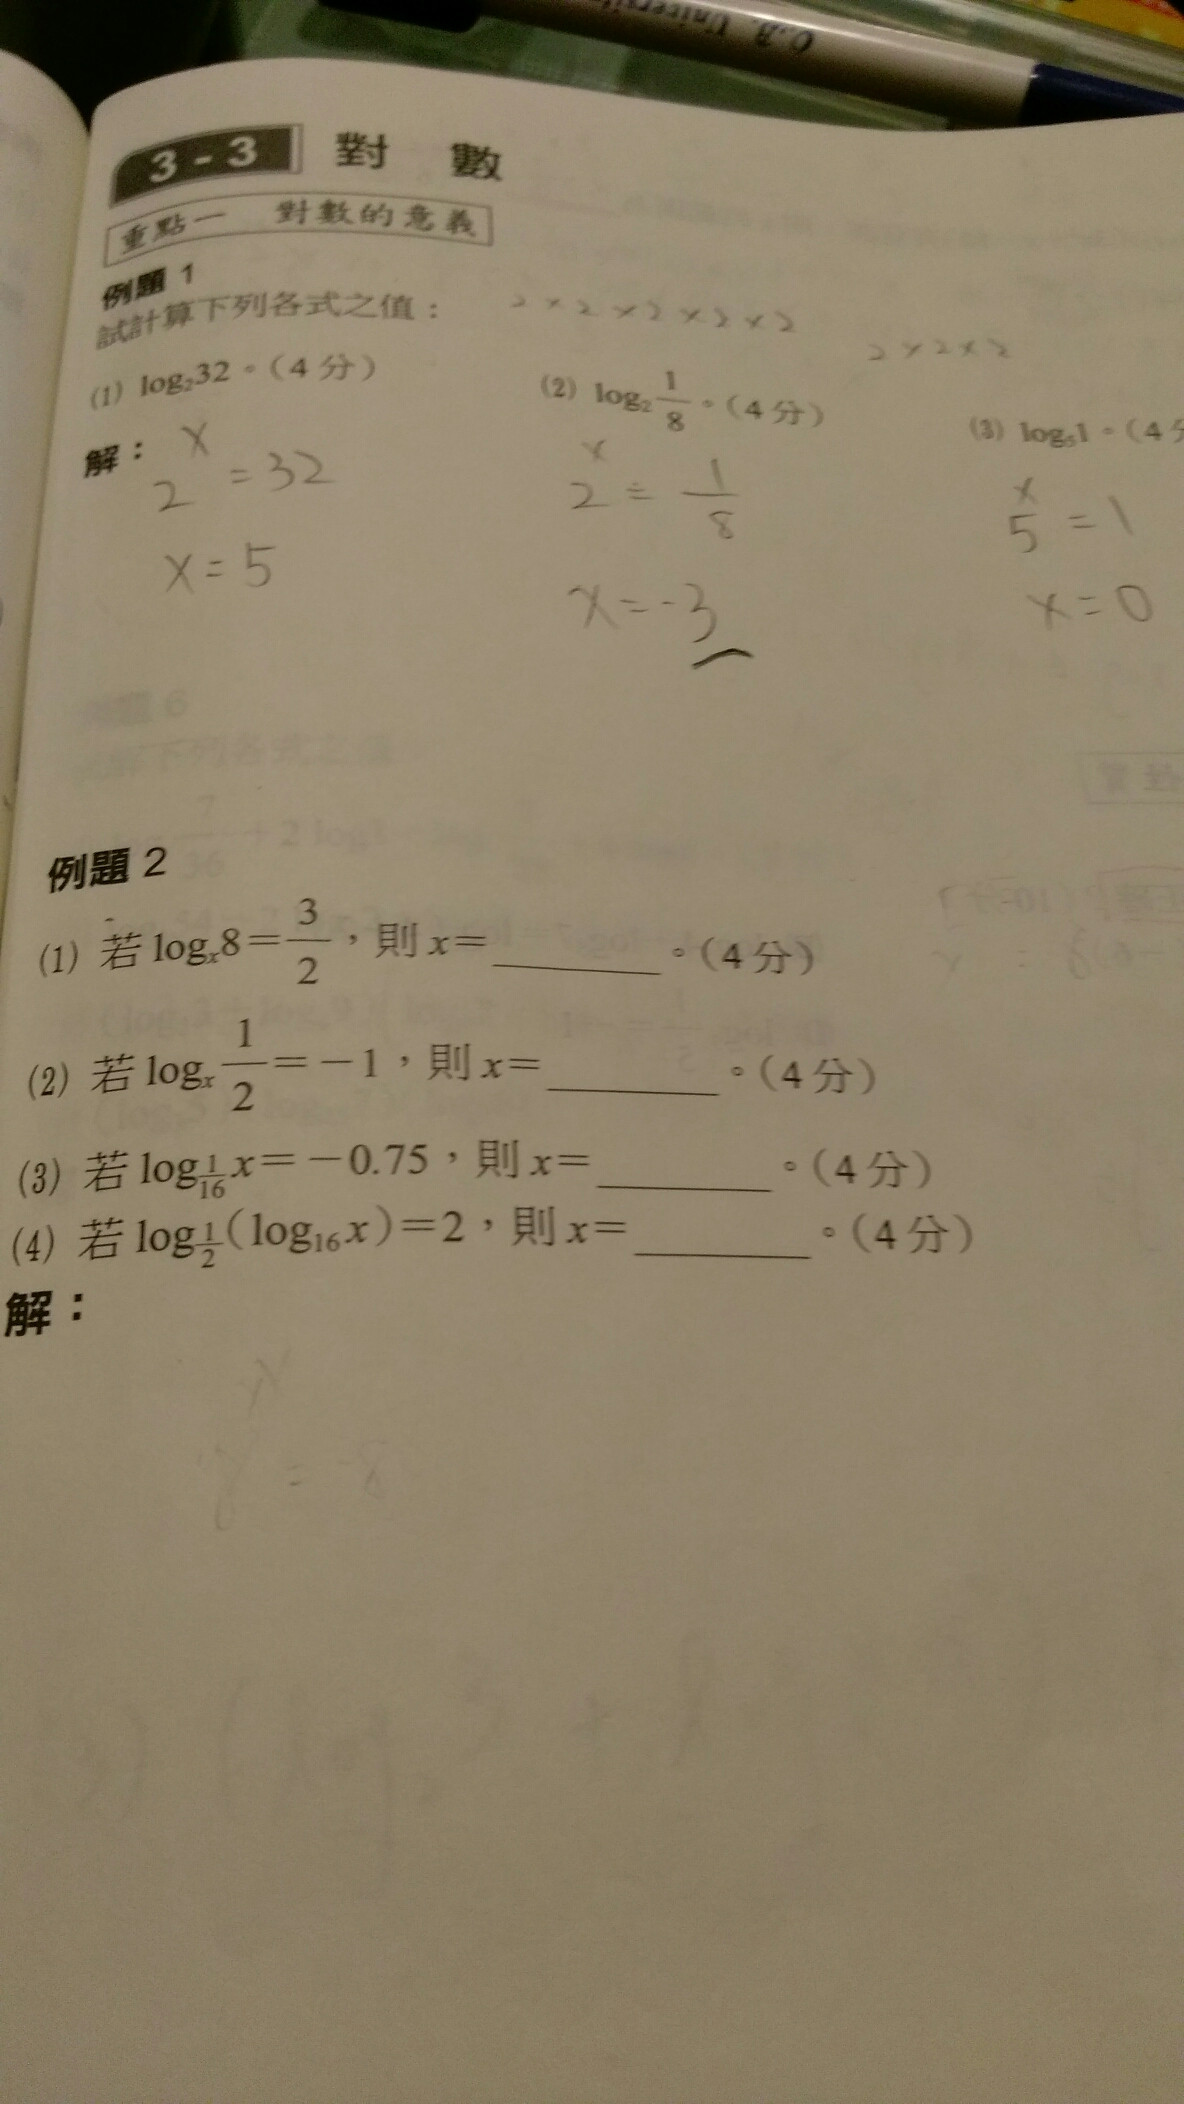 O.B. Universi
3-3 對 數
重點一 對數的意義
例題 1
試計算下列各式之值：
2×2×2×2×2
2×2×2
(1) log₂32。(4 分)
(2) log₂ 1/8。(4 分)
(3) log₅1。(4
解：
2ˣ = 32
2ˣ = 1/8
5ˣ = 1
x = 5
x = -3
x = 0
例題 2
(1) 若 logₓ8 = 3/2，則 x = ______。(4 分)
(2) 若 logₓ 1/2 = -1，則 x = ______。(4 分)
(3) 若 log_{1/16} x = -0.75，則 x = ______。(4 分)
(4) 若 log_{1/2}(log₁₆x) = 2，則 x = ______。(4 分)
解：